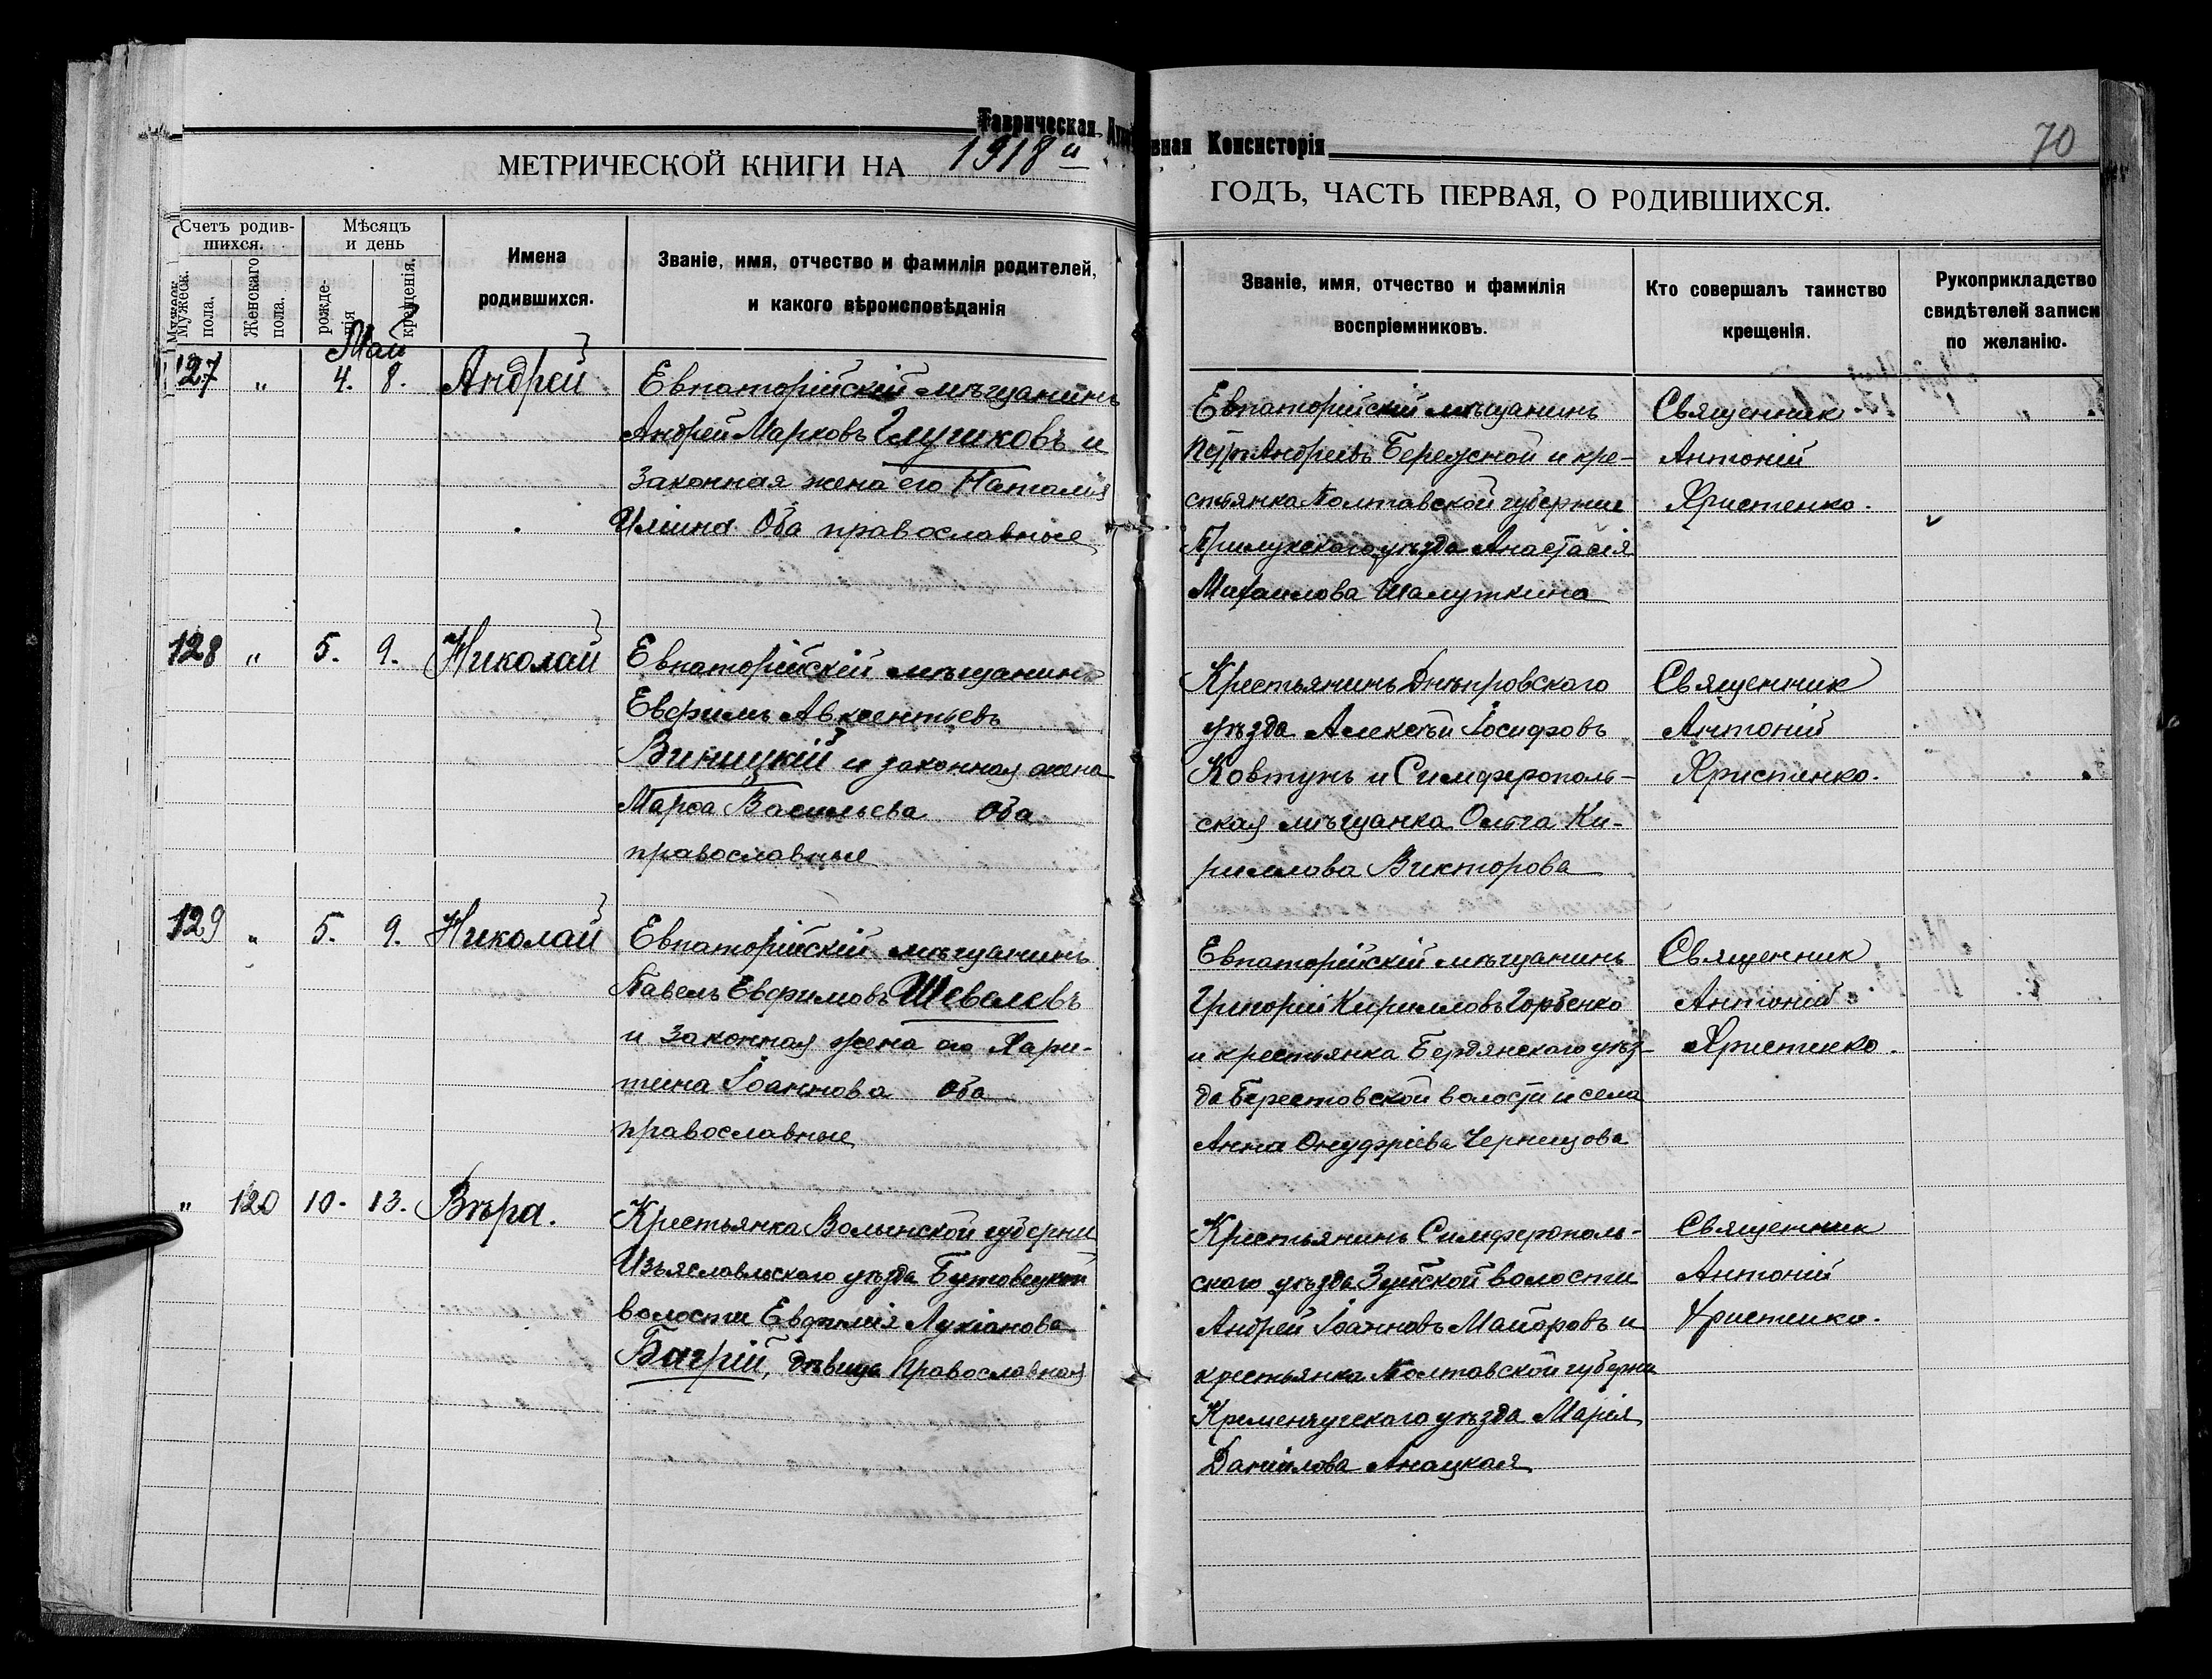 Таврическая Духовная Консисторія
70
МЕТРИЧЕСКОЙ КНИГИ НА 1918й
ГОДЪ, ЧАСТЬ ПЕРВАЯ, О РОДИВШИХСЯ.
Счетъ родив-
шихся.
Мужеск. пола.
Женскаго пола.
Мѣсяцъ
и день
рожде-
нія
крещенія.
Имена
родившихся.
Званіе, имя, отчество и фамилія родителей,
и какого вѣроисповѣданія
Званіе, имя, отчество и фамилія
воспріемниковъ.
Кто совершалъ таинство
крещенія.
Рукоприкладство
свидѣтелей записи
по желанію.
Май
127 " 4. 8. Андрей
Евпаторійскій мѣщанинъ
Андрей Марковъ Глушковъ и
законная жена его Наталія
Оба православные
Евпаторійскій мѣщанинъ
Петръ Андреевъ Бережной и кре-
стьянка Полтавской губерніи
Прилукскаго уѣзда Анастасія
Михаилова Шалуткина
Священник
Антоній
Христенко.
128 " 5. 9. Николай
Евпаторійскій мѣщанинъ
Евфимъ Авксентьевъ
Виницкій и законная жена
Марѳа Васильева Оба
православные
Крестьянинъ Днѣпровскаго
уѣзда Алексѣй Іосифовъ
Ковтунъ и Симферополь-
ская мѣщанка Ольга Ки-
риллова Викторова
Священник
Антоній
Христенко.
129 " 5. 9. Николай
Евпаторійскій мѣщанинъ
Павелъ Евфимовъ Шевелевъ
и законная жена его Хари-
тина Іоаннова Оба
православные
Евпаторійскій мѣщанинъ
Григорій Кирилловъ Горбенко
и крестьянка Бердянскаго уѣз-
да Берестовской волости и села
Анна Онуфріева Чернецова
Священник
Антоній
Христенко.
" 120 10. 13. Вѣра.
Крестьянка Волынской губерніи
Изъяславльскаго уѣзда
волости Евфимія Лукіанова
Багрій, дѣвица Православная
Крестьянинъ Симферополь-
скаго уѣзда Зуйской волости
Андрей Іоанновъ Майоровъ и
крестьянка Полтавской губерніи
Кременчугскаго уѣзда Марія
Даніилова Анацкая
Священник
Антоній
Христенко.